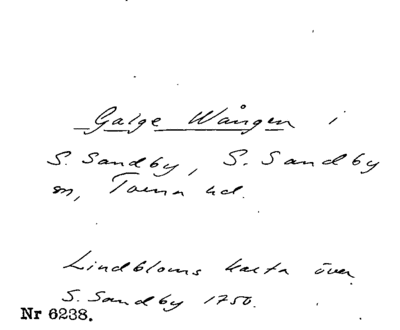 Galge Wången i
S. Sandby, S. Sandby
sn, Torna hd.
Lindbloms karta över
S. Sandby 1750.
Nr 6238.